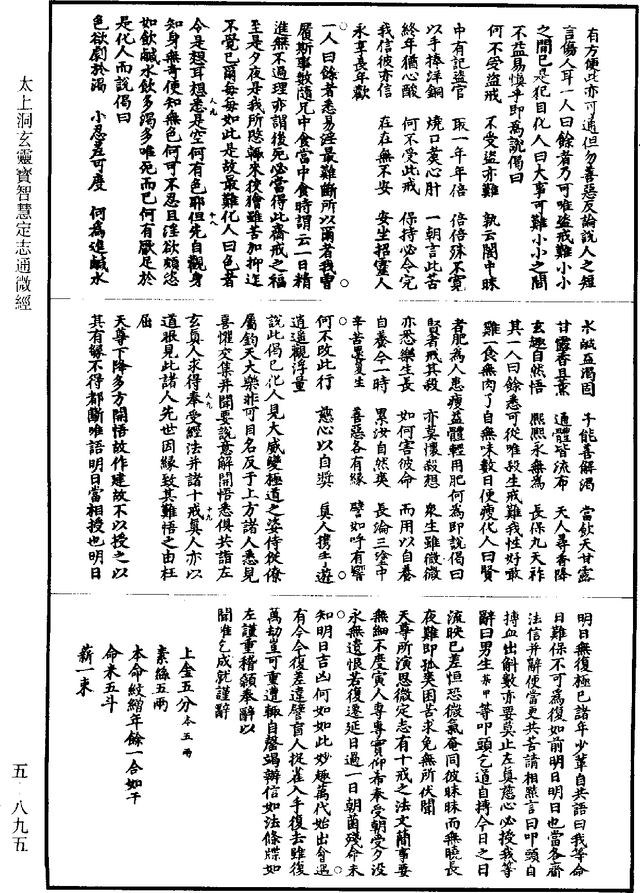 太上洞玄靈寶智慧定志通微經
有方便此亦可通但勿善惡反論說人之短
言傷人耳一人曰餘者乃可唯盜戒難小小
之間已是犯目化人曰大事可難小小之間
不益易慎乎即為說偈曰
何不受盜戒　不受盜亦難　孰云闇中昧
中有記盜官　取一年年倍　倍倍殊不寬
以手捧洋銅　燒口爛心肝　一朝言此苦
終年猶心酸　何不受此戒　保持必令完
我信彼亦信　在在無不安　安坐招靈人
永享長年歡
一人曰餘者悉易淫最難斷所以爾者我曹
履斯事數隨兄中食當中食時謂云一日精
進無不過理亦謂後死必當得此齋戒之福
至是夕夜是我所愍輙來彼獪雖苦加抑迮
不覺已爾每每如此是故最難化人曰色者
今是想耳想悉是空何有色耶但先自觀身
知身無寄便知無色何可不忍且淫欲頗恣
如飲鹹水飲多渴多唯死而已何有厭足於
是化人而說偈曰
色欲劇於渴　小忍差可度　何為進鹹水
水鹹益渴因　千能善解渴　當飲天甘露
甘露香且薰　通體皆流布　天人尋香降
玄趣自然悟　熈熈永無為　長保九天祚
其一人曰餘悉可從唯殺生戒難我性好敢
雞一食無肉了自無味數日便瘦化人曰賢
者肥為人患瘦益體輕用肥何為即說偈曰
賢者戒其殺　亦莫懷殺想　衆生雖微微
亦悉樂生長　如何害彼命　而用以自養
自養今一時　累汝自然爽　長淪三塗中
辛苦還復生　善惡各有緣　譬如呼有響
何不改此行　慈心以自獎　真人携手遊
逍遙觀浮量
說此偈已化人見大威變極道之姿侍從僚
屬鈞天大樂非可目名反于上方諸人悉見
喜懼交集并聞要說意解開悟悉俱共詣左
玄真人求得奉受經法并諸十戒真人亦以
道眼見此諸人先世因緣致其難悟之由枉
屈
天尊下降多方開悟故作建故不以授之以
其有緣不得都斷唯語明日當相授也明日
明日無復極已諸年少輩自共語曰我等命
日難保不可為復如前明日明日也當各齋
法信并辭便當更共苦請相然言曰叩頭自
搏血出斛數亦要莫止左真慈心必授我等
辭曰男生某甲等叩頭乞道自持今日之日
流映已差恒恐微氣奄同彼昧昧而無曉長
夜難即孤爽困苦求免無所伏聞
天尊所演思微定志有十戒之法文簡事要
無細不度寅人專專實仰希奉受朝受夕沒
永無遺恨若復遷延日過一日朝菌殘命未
知明日吉凶何如如此妙趣萬代始出會遇
有今今復差違譬盲人捉雀入手復去雖復
萬劫豈可重遭輙自罄竭辦信如法條牒如
左謹重稽顙奉辭以
聞唯乞成就謹辭
上金五分本五兩
素絲五兩
本命紋繒年餘一合如干
命米五斗
薪一束
五-八九五